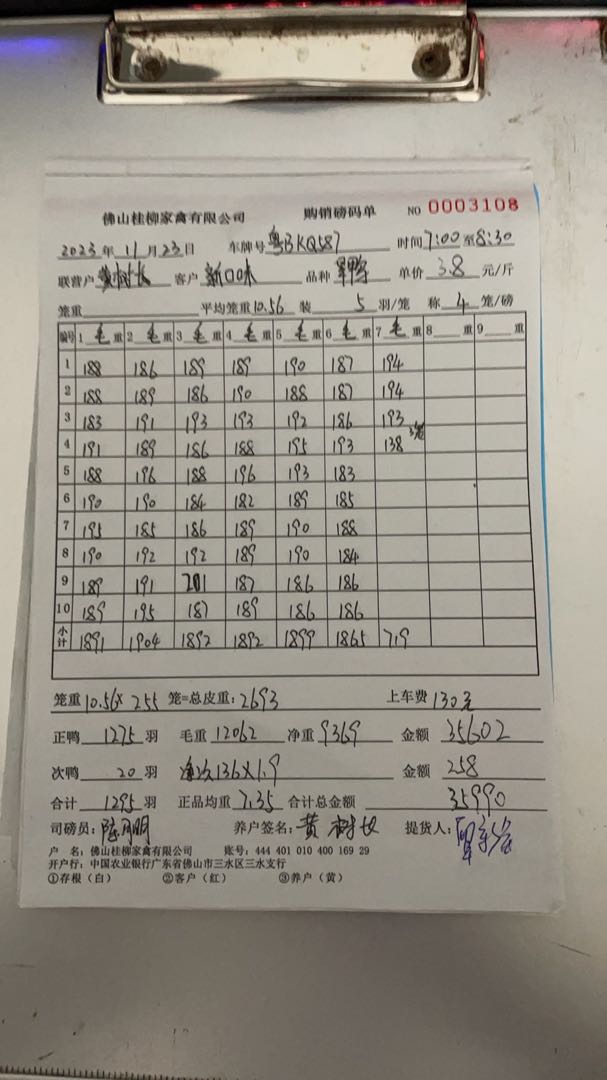 佛山桂柳家禽有限公司 购销磅码单 NO 0003108
2023年11月23日 车牌号粤BKQ587 时间7:00至8:30
联营户黄树长 客户新口味 品种 单价3.8元/斤
笼重 平均笼重10.56 装5羽/笼 称4笼/磅
编号 1毛重 2毛重 3毛重 4毛重 5毛重 6毛重 7毛重 8重 9重
1 188 186 189 189 190 187 194
2 188 189 186 190 188 187 194
3 183 191 193 193 192 186 193
4 191 189 186 188 195 193 138 3笼
5 188 196 188 196 193 183
6 190 190 184 182 189 185
7 195 185 186 189 190 188
8 190 192 192 189 190 184
9 189 191 201 187 186 186
10 189 195 187 189 186 186
小计 1891 1904 1892 1892 1899 1865 719
笼重10.56×255笼=总皮重:2693 上车费130元
正鸭1275羽 毛重12062 净重9369 金额35602
次鸭20羽 136×1.9 金额258
合计1295羽 正品均重7.35 合计总金额35990
司磅员: 养户签名:黄树长 提货人:
户 名:佛山桂柳家禽有限公司 账号:444 401 010 400 169 29
开户行:中国农业银行广东省佛山市三水区三水支行
①存根(白) ②客户(红) ③养户(黄)